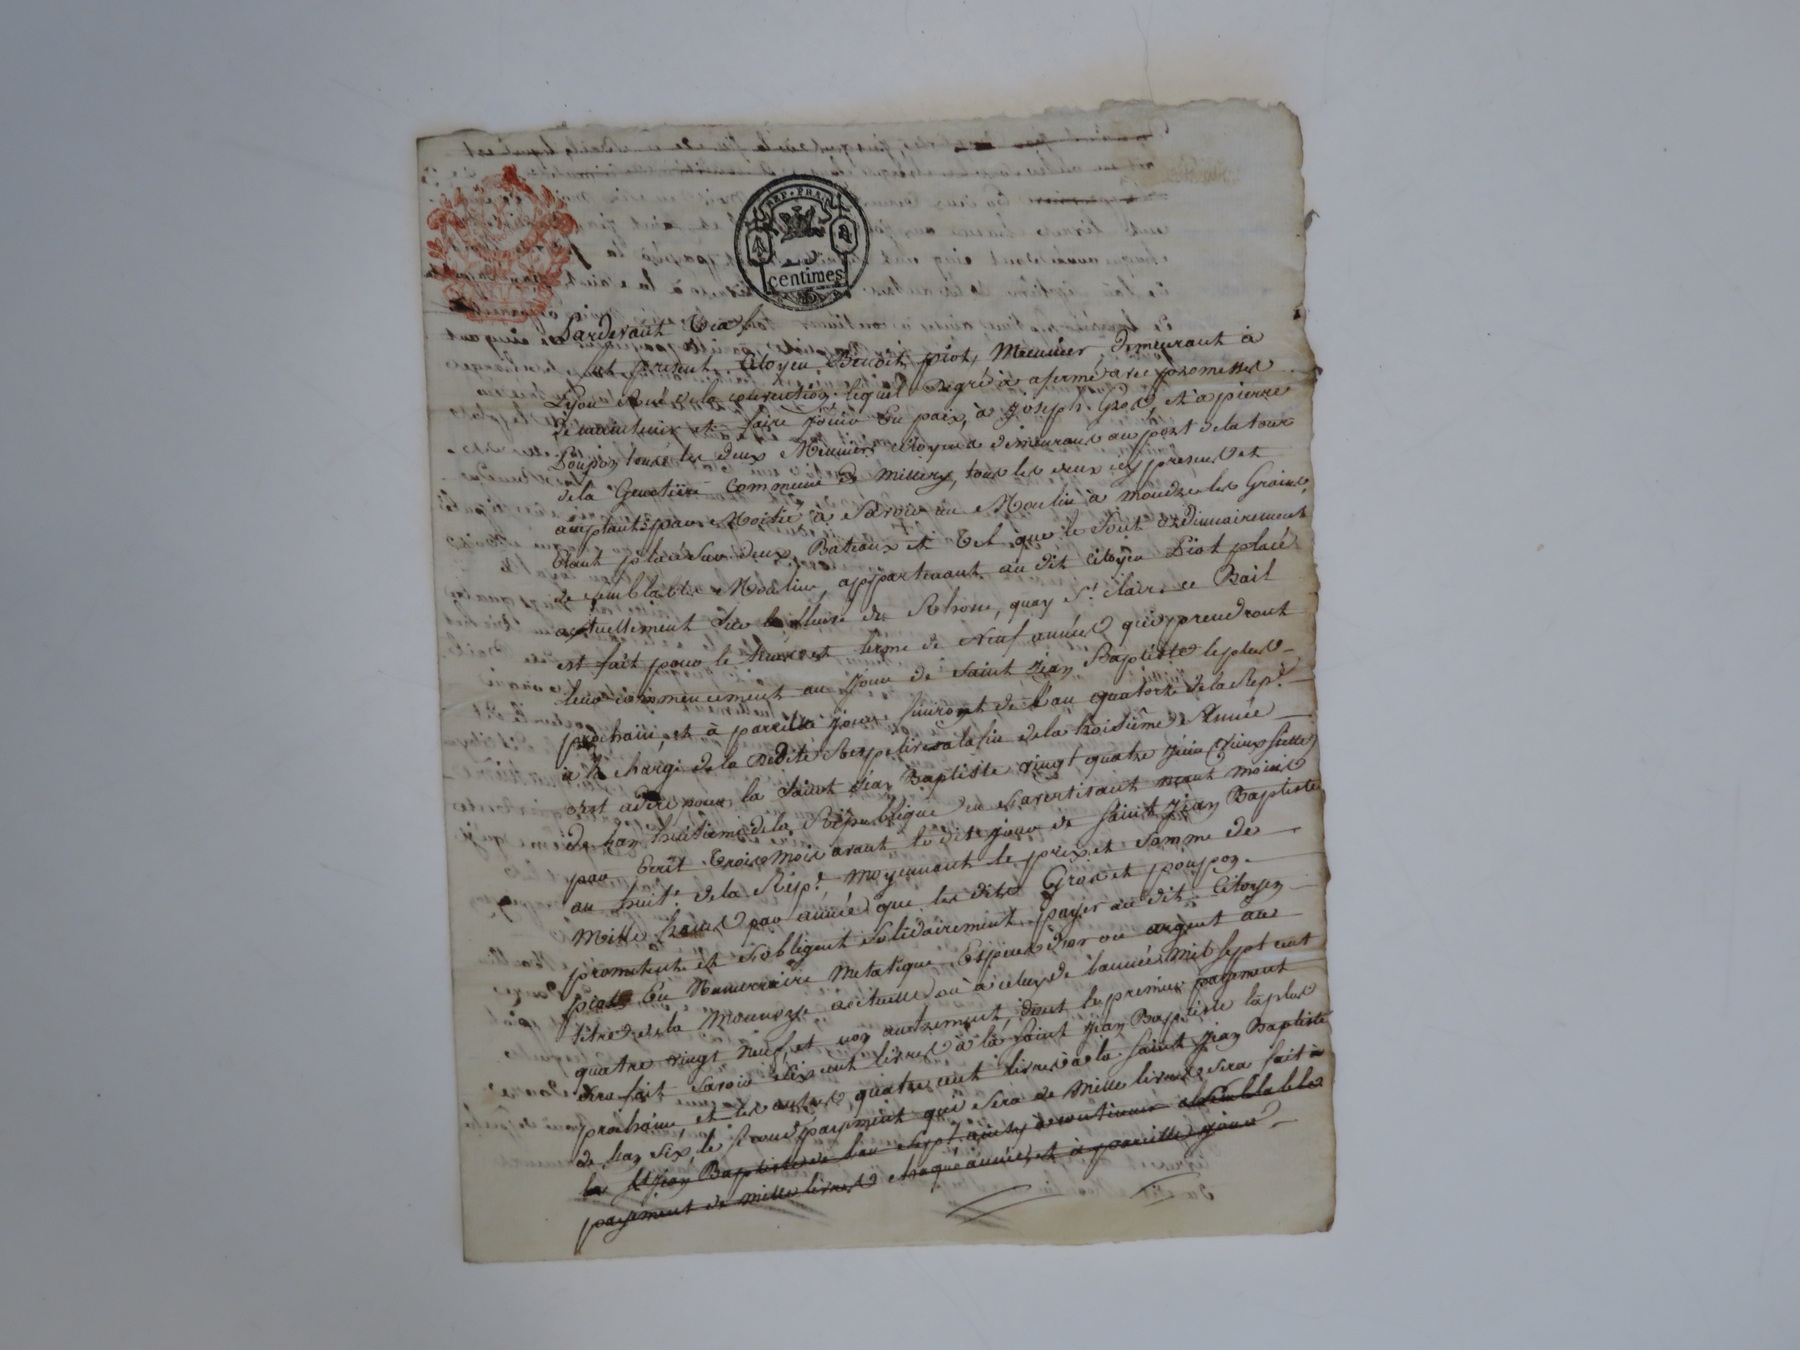 REP. FRA.
centimes
Pardevant
est present Citoyen Benoit piot, Meunier, demeurant à
Lyon rue de la convention, lequel degré à afermé avec promesses
de maintenir et faire jouir en paix, à Joseph Gros, et à pierre
Poupon tous les deux Meuniers Citoyens demeurans au port de la tour
de la commune de Millery, tous les deux cy presens et
acceptants par Moitié à Savoir un Moulin à moudre les Grains,
étant placé sur deux Bateaux et tel que le sont ordinairement
de semblables Moulins, appartenant au dit Citoyen Piot placé
actuellement sur le fleuve du Rhone, quay St. Clair, ce Bail
est fait pour le tems et terme de Neuf années qui prendront
leur commencement au jour de Saint Jean Baptiste le plus
prochain, et à pareille jour finiront de l'an quatorze de la Rep.
à la charge de la de la troisième Année
cest adire pour la Saint Jean Baptiste vingt quatre juin (vieux stille)
de l'an huitieme de la Republique en savertisant moins
par Ecrit trois mois avant le dit jour de Saint Jean Baptiste
an huit. de la Rep. moyennant le prix et somme de
Mille francs par année que les dits Gros et poupon
promettent et s'obligent solidairement payer au dit Citoyen
piot En Numeraire Metalique Espèces d'or ou argent au
titre de la Monnoye actuelle ou à celuy de l'année mil sept cent
quatre vingt Neuf, et non autrement, dont le premier payement
sera fait Savoir six cent livres à la Saint Jean Baptiste la plus
prochaine, et les autres quatre cent livres à la Saint Jean Baptiste
de l'an six, le second payement qui sera de Mille livres sera fait à
la St Jean Baptiste de l'an sept ainsy à continuer semblable
payement de mille livres chaque année, et à pareille jour